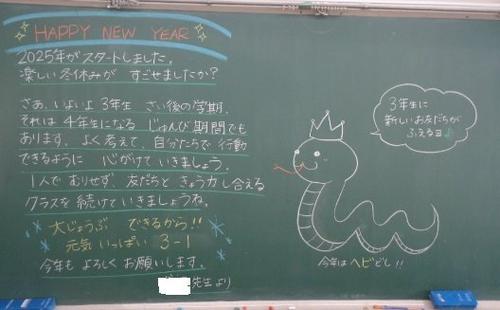 HAPPY NEW YEAR
2025年がスタートしました。
楽しい冬休みが すごせましたか？
さあ、いよいよ3年生 さい後の学期。
それは4年生になる じゅんび期間でも
あります。よく考えて、自分たちで行動
できるように 心がけていきましょう。
1人でむりせず、友だちときょう力し合える
クラスを続けていきましょうね。
大じょうぶ できるから!!
元気いっぱい 3-1
今年も よろしくお願いします。
先生より
3年生に
新しいお友だちが
ふえるヨ♪
今年はヘビどし!!